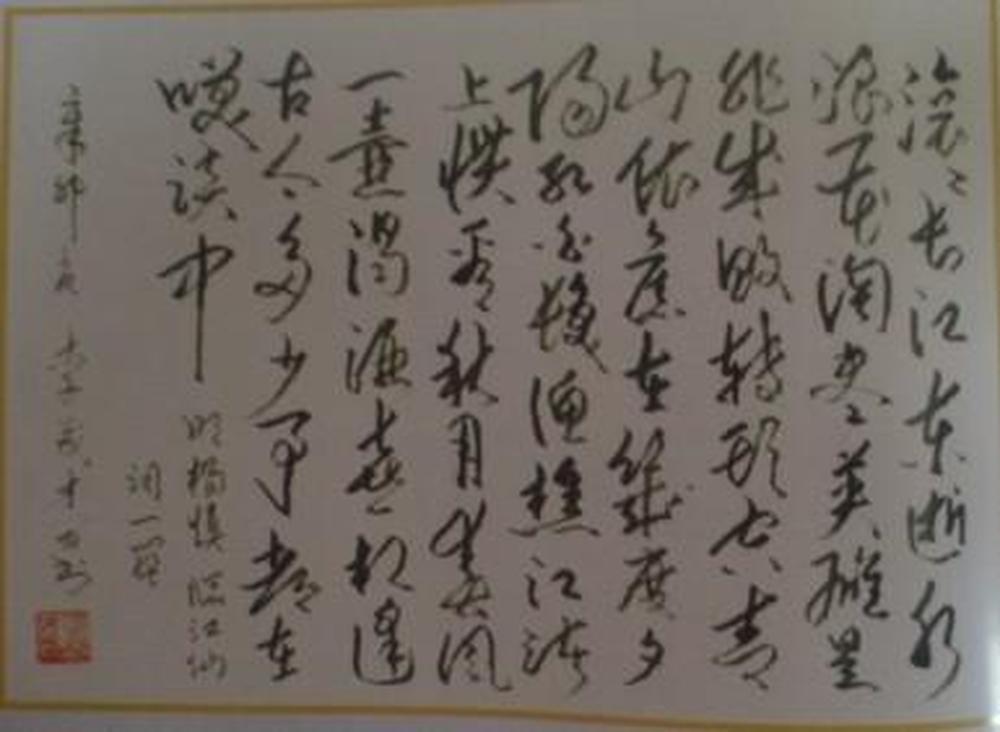 滚滚长江东逝水
浪花淘尽英雄是
非成败转头空青
山依旧在幾度夕
阳红白髮渔樵江渚
上惯看秋月春风
一壶浊酒喜相逢
古今多少事都在
笑谈中
明杨慎临江仙
词一